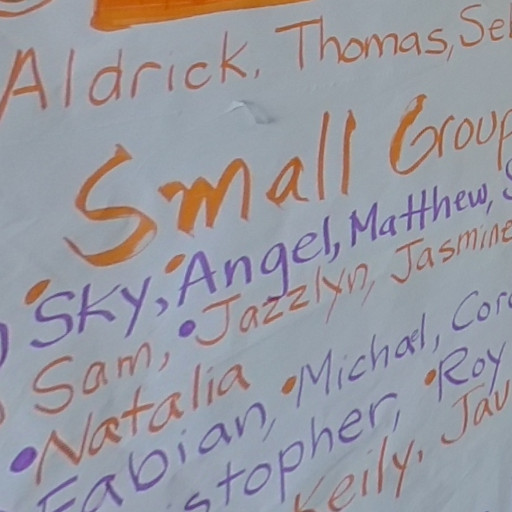 Aldrick, Thomas, Sel
Small Group
•Sky, •Angel, Matthew, S
Sam, •Jazzlyn, Jasmine
•Natalia •Michael, Cor
Fabian, stopher, •Roy
Keily, Jav